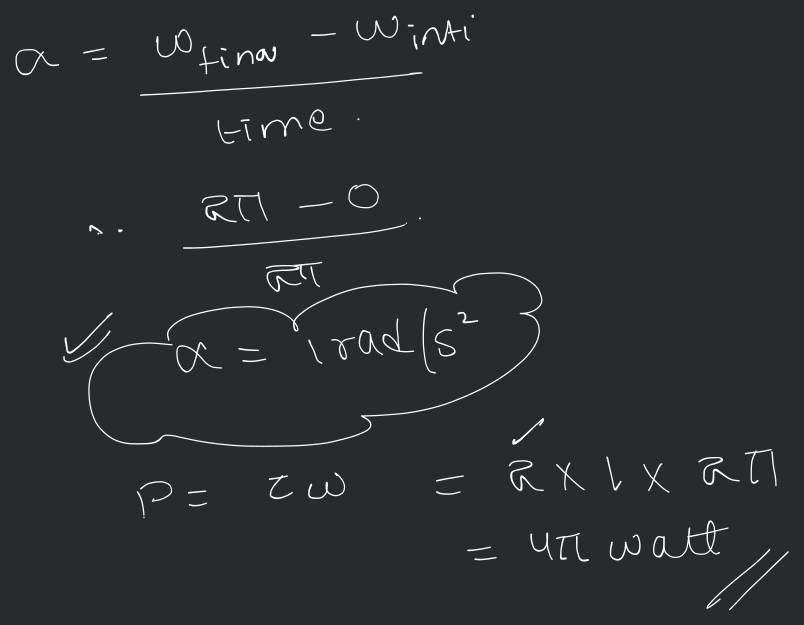 α = ω final - ω inti
time.
∴ 2π - 0
2π
α = 1 rad/s²
P = τω = 2 x 1 x 2π
= 4π watt